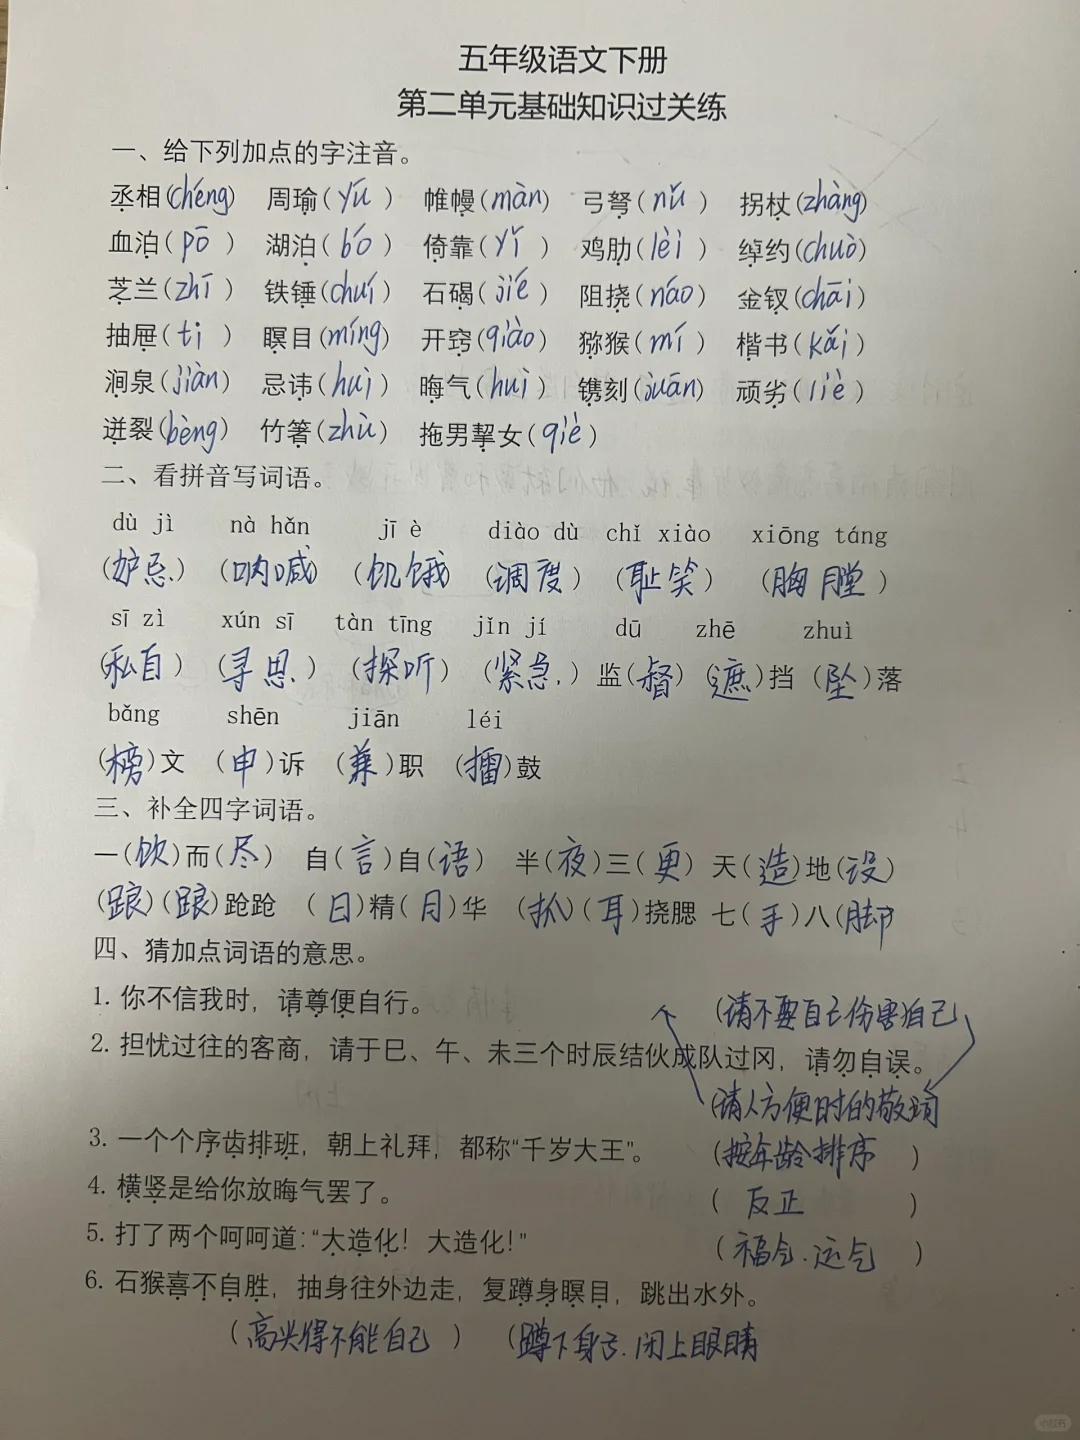 五年级语文下册
第二单元基础知识过关练
一、给下列加点的字注音。
丞相(chéng) 周瑜(yú) 帷幔(màn) 弓弩(nǔ) 拐杖(zhàng)
血泊(pō) 湖泊(bó) 倚靠(yǐ) 鸡肋(lèi) 绰约(chuò)
芝兰(zhī) 铁锤(chuí) 石碣(jié) 阻挠(náo) 金钗(chāi)
抽屉(ti) 瞑目(míng) 开窍(qiào) 猕猴(mí) 楷书(kǎi)
涧泉(jiàn) 忌讳(huì) 晦气(huì) 镌刻(juān) 顽劣(liè)
迸裂(bèng) 竹箸(zhù) 拖男挈女(qiè)
二、看拼音写词语。
dù jì nà hǎn jī è diào dù chǐ xiào xiōng táng
(妒忌) (呐喊) (饥饿) (调度) (耻笑) (胸膛)
sī zì xún sī tàn tīng jǐn jí dū zhē zhuì
(私自) (寻思) (探听) (紧急) 监(督) (遮)挡 (坠)落
bǎng shēn jiān léi
(榜)文 (申)诉 (兼)职 (擂)鼓
三、补全四字词语。
一(饮)而(尽) 自(言)自(语) 半(夜)三(更) 天(造)地(设)
(踉)(踉)跄跄 (日)精(月)华 (抓)(耳)挠腮 七(手)八(脚)
四、猜加点词语的意思。
1. 你不信我时，请尊便自行。 (请不要自己伤害自己
2. 担忧过往的客商，请于巳、午、未三个时辰结伙成队过冈，请勿自误。
(请人方便时的敬词
3. 一个个序齿排班，朝上礼拜，都称“千岁大王”。 (按年龄排序)
4. 横竖是给你放晦气罢了。 (反正)
5. 打了两个呵呵道：“大造化！大造化！” (福气.运气)
6. 石猴喜不自胜，抽身往外边走，复蹲身瞑目，跳出水外。
(高兴得不能自己) (蹲下身子.闭上眼睛
小红书